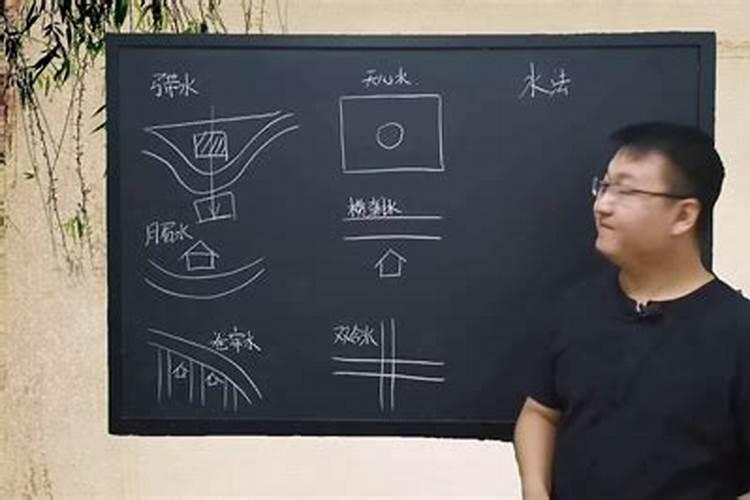 弓带水
天心水
水法
月眉水
横案水
仓牢水
双合水